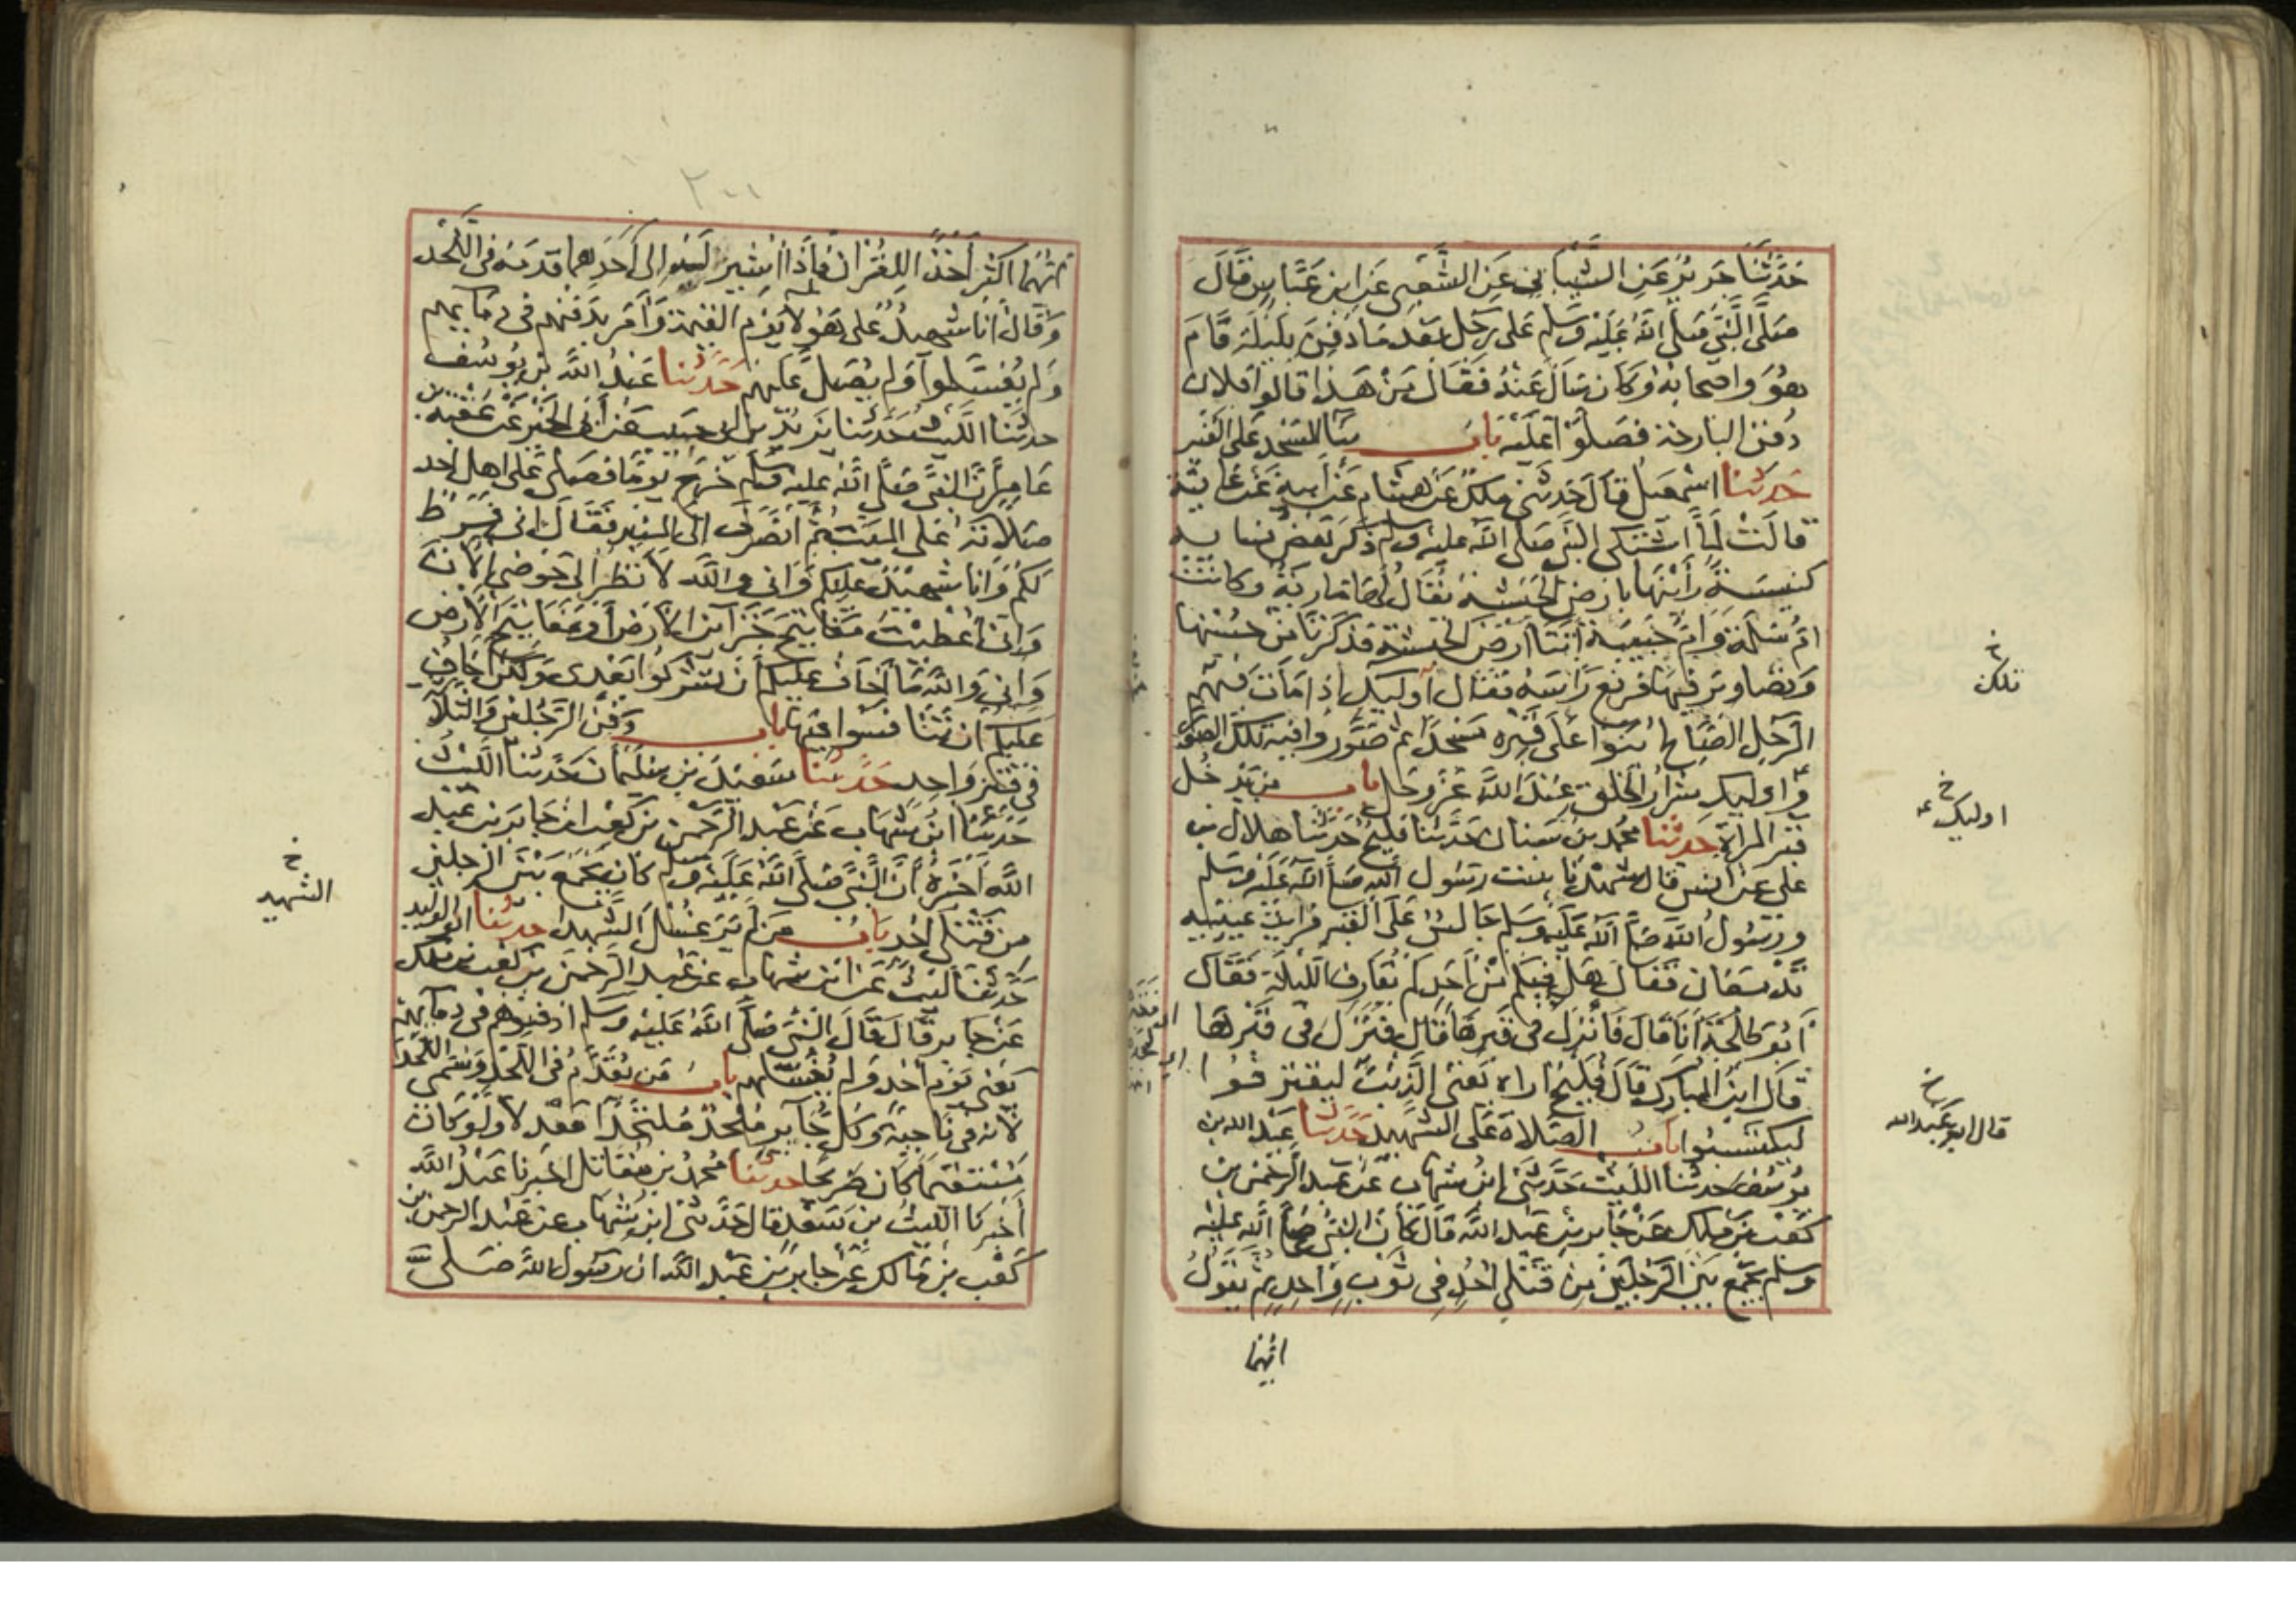 حَدَّثَنَا جَرِيرٌ عَنِ الشَّيْبَانِيِّ عَنِ الشَّعْبِيِّ عَنِ ابنِ عَبَّاسٍ قَالَ
صَلَّى النَّبِيُّ صَلَّى اللَّهُ عَلَيْهِ وَسَلَّمَ عَلَى رَجُلٍ بَعْدَ مَا دُفِنَ بِلَيْلَةٍ قَامَ
هُوَ وَاصْحَابُهُ وَكَانَ سَأَلَ عَنْهُ فَقَالَ مَنْ هَذَا قالوا فلان
دُفِنَ البَارِحَةَ فَصَلَّوْا عَلَيْهِ بَابُ بِنَا المَسْجِدِ عَلَى القَبْرِ
حَدَّثَنَا اسْمَعِيلُ قَالَ حَدَّثَنِي مَلِكٌ عَنْ هِشَامٍ عَنْ أَبِيهِ عَنْ عَائِشَةَ
قَالَتْ لَمَّا اشْتَكَى النَّبِيُّ صَلَّى اللَّهُ عَلَيْهِ وَسَلَّمَ ذَكَرَ بَعْضُ نِسَايِهِ
كَنِيسَةً رَأَيْنَهَا بِأَرْضِ الحَبَشَةِ يُقَالُ لَهَا مَارِيَةُ وَكَانَتْ
امُّ سَلَمَةَ وَامُّ حَبِيبَةَ أَتَتَا أَرْضَ الحَبَشَةِ فَذَكَرَتَا مِنْ حُسْنِهَا
وَتَصَاوِيرَ فِيهَا فَرَفَعَ رَأْسَهُ فَقَالَ أُولَيِكِ إِذَا مَاتَ فِيهُمُ
الرَّجُلُ الصَّالِحُ بَنَوْا عَلَى قَبْرِهِ مَسْجِدًا ثُمَّ صَوَّرُوا فِيهِ تِلْكَ الصُّوَرَ
وَاولَيِكِ شِرَارُ الخَلْقِ عِنْدَ اللَّهِ عَزَّ وَجَلَّ بَابُ مَنْ يَدْخُلُ
قَبْرَ المَرْأَةِ حَدَّثَنَا مُحَمَّدُ بنُ سِنَانٍ حَدَّثَنَا فُلَيْحٌ حَدَّثَنَا هِلَالُ بن
عَلِيٍّ عَنْ أَنَسٍ قَالَ شَهِدْنَا بِنْتَ رَسُولِ اللَّهِ صَلَّى اللَّهُ عَلَيْهِ وَسَلَّمَ
وَرَسُولُ اللَّهِ صَلَّى اللَّهُ عَلَيْهِ وَسَلَّمَ جَالِسٌ عَلَى القَبْرِ فَرَأَيْتُ عَيْنَيْهِ
تَدْمَعَانِ فَقَالَ هَلْ فِيكُمْ مِنْ أَحَدٍ لَمْ يُقَارِفِ اللَّيْلَةَ فَقَالَ
أَبُو طَلْحَةَ أَنَا قَالَ فَانْزِلْ فِي قَبْرِهَا قَالَ فَنَزَلَ فِي قَبْرِهَا
قَالَ ابنُ المُبَارَكِ قَالَ فُلَيْحٌ اراه يَعْنِي الذَّنْبَ لِيَقْتَرِفُوا
لِيَكْتَسِبُوا بَابُ الصَّلَاةِ عَلَى الشَّهِيدِ حَدَّثَنَا عَبْدُ الله بن
يُوسُفَ حَدَّثَنَا اللَّيْثُ حَدَّثَنِي ابنُ شِهَابٍ عَنْ عَبْدِ الرَّحْمَنِ بْنِ
كَعْبِ بْنِ مَلِكٍ عَنْ جَابِرِ بنِ عَبْدِ اللَّهِ قَالَ كَانَ النَّبِيُّ صَلَّى اللَّهُ عَلَيْهِ
وَسَلَّمَ يَجْمَعُ بَيْنَ الرَّجُلَيْنِ مِنْ قَتْلَى أُحُدٍ فِي ثَوْبٍ وَاحِدٍ ثُمَّ يَقُولُ
ايّهُمْا
خ
تلك
خ
اوليك
خ
قال ابو عَبد الله
٢٠١
ايّهُمَا اكْثَرُ أَخْذًا لِلْقُرْآنِ فَإِذَا أُشِيرَ لَهُ إِلَى أَحَدِهِمَا قَدَّمَهُ فِي اللَّحْدِ
وَقَالَ أَنَا شَهِيدٌ عَلَى هَؤُلَاءِ يَوْمَ القِيَمَةِ وَأَمَرَ بِدَفْنِهِمْ فِي دِمَايِهِمْ
وَلَمْ يُغْسَلُوا وَلَمْ يُصَلَّ عَلَيْهِمْ حَدَّثَنَا عَبْدُ اللَّهِ بْنُ يُوسُفَ
حَدَّثَنَا اللَّيْثُ حَدَّثَنَا يَزِيدُ بنُ أَبِي حَبِيبٍ عَنْ أَبِي الخَيْرِ عَنْ عُقْبَةَ بن
عَامِرٍ أَنَّ النَّبِيَّ صَلَّى اللَّهُ عَلَيْهِ وَسَلَّمَ خَرَجَ يَوْمًا فَصَلَّى عَلَى اهل احد
صَلَاتَهُ عَلَى المَيِّتِ ثُمَّ انْصَرَفَ الَى المِنْبَرِ فَقَالَ انِّي فَرَطٌ
لَكُمْ وَانَا شَهِيدٌ عَلَيْكُمْ وَانِّي وَاللَّهِ لَأَنْظُرُ الَى حَوْضِي الْآنَ
وَانِّي أُعْطِيتُ مَفَاتِيحَ خَزَآيِنِ الْأَرْضِ أَوْ مَفَاتِيحَ الْأَرْضِ
وَانِّي وَاللَّهِ مَا أَخَافُ عَلَيْكُمْ أَنْ تُشْرِكُوا بَعْدِي وَلَكِنْ أَخَافُ
عَلَيْكُمْ أَنْ تَنَافَسُوا فِيهَا بَابُ دَفْنِ الرَّجُلَيْنِ وَالثَّلَاثَةِ
فِي قَبْرٍ وَاحِدٍ حَدَّثَنَا سَعِيدُ بنُ سُلَيْمَانَ حَدَّثَنَا اللَّيْثُ
حَدَّثَنَا ابنُ شِهَابٍ عَنْ عَبْدِ الرَّحْمَنِ بنِ كَعْبٍ انَّ جَابِرَ بنَ عَبْدِ
اللَّهِ أَخْبَرَهُ أَنَّ النَّبِيَّ صَلَّى اللَّهُ عَلَيْهِ وَسَلَّمَ كَانَ يَجْمَعُ بَيْنَ الرَّجُلَيْنِ
مِنْ قَتْلَى احُدٍ بَابُ مَنْ لَمْ يَرَ غَسْلَ الشَّهِيدِ حَدَّثَنَا ابو الوليد
حَدَّثَنَا لَيْثٌ عَنِ ابْنِ شِهَابٍ عَنْ عَبْدِ الرَّحْمَنِ بنِ كَعْبِ بنِ مَلِكٍ
عَنْ جَابِرٍ قَالَ قَالَ النَّبِيُّ صَلَّى اللَّهُ عَلَيْهِ وَسَلَّمَ ادْفِنُوهُمْ فِي دِمَآيِهِمْ
يَعْنِي يَوْمَ أُحُدٍ وَلَمْ يُغَسِّلْهُمْ بَابُ مَنْ يُقَدَّمُ فِي اللَّحْدِ وَسُمِّيَ اللَّحْدَ
لِأَنَّهُ فِي نَاحِيَةٍ وَكُلُّ جَآيِرٍ مُلْحِدٌ مُلْتَحَدًا مَعْدِلًا وَلَوْ كَانَ
مُسْتَقِيمًا كَانَ ضَرِيحًا حَدَّثَنَا مُحَمَّدُ بنُ مُقَاتِلٍ اخْبَرَنَا عَبْدُ اللَّهِ
أَخْبَرَنَا اللَّيْثُ بنُ سَعْدٍ قَالَ حَدَّثَنِي ابنُ شِهَابٍ عَنْ عَبْدِ الرَّحمن بن
كَعْبِ بْنِ مَالِكٍ عَنْ جَابِرِ بْنِ عَبْدِ اللَّهِ ان رَسُولَ اللَّهِ صَلَّى
خ
الشهيد